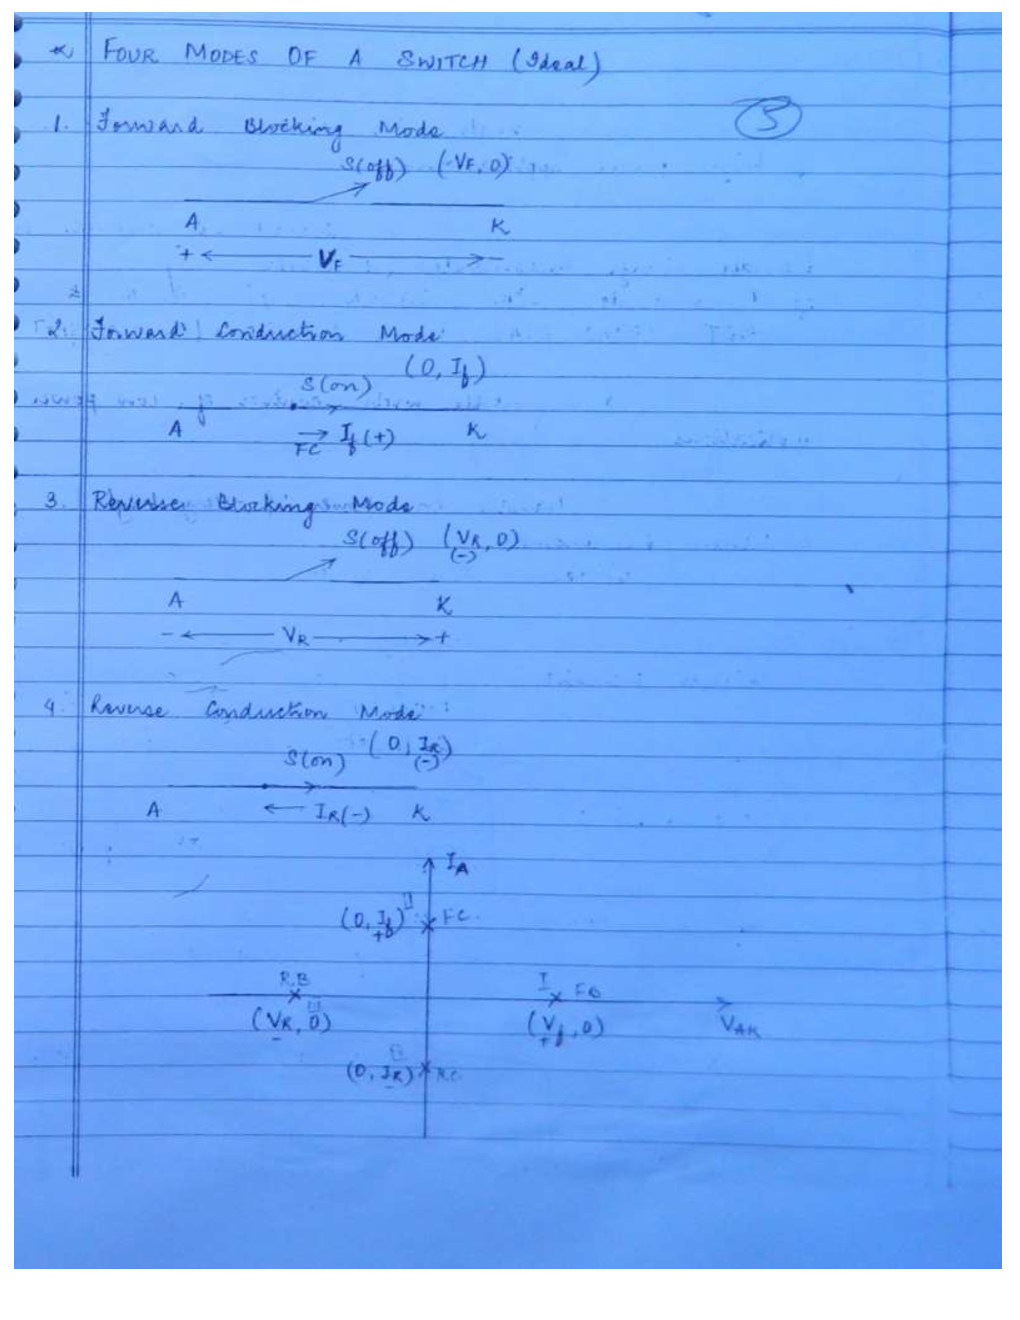 * FOUR MODES OF A SWITCH (Ideal)
5
1. Forward Blocking Mode
S(off) (-VF, 0)
A K
+ VF -
2. Forward Conduction Mode
(0, If)
S(on)
A K
FC If (+)
3. Reverse Blocking Mode
S(off) (VR, 0)
(-)
A K
- VR +
4. Reverse Conduction Mode :
S(on) (0, IR)
(-)
A IR(-) K
IA
(0, If) II FC
+
RB I FB
(VR, 0) III (Vf, 0) VAK
- +
(0, IR) RC
-